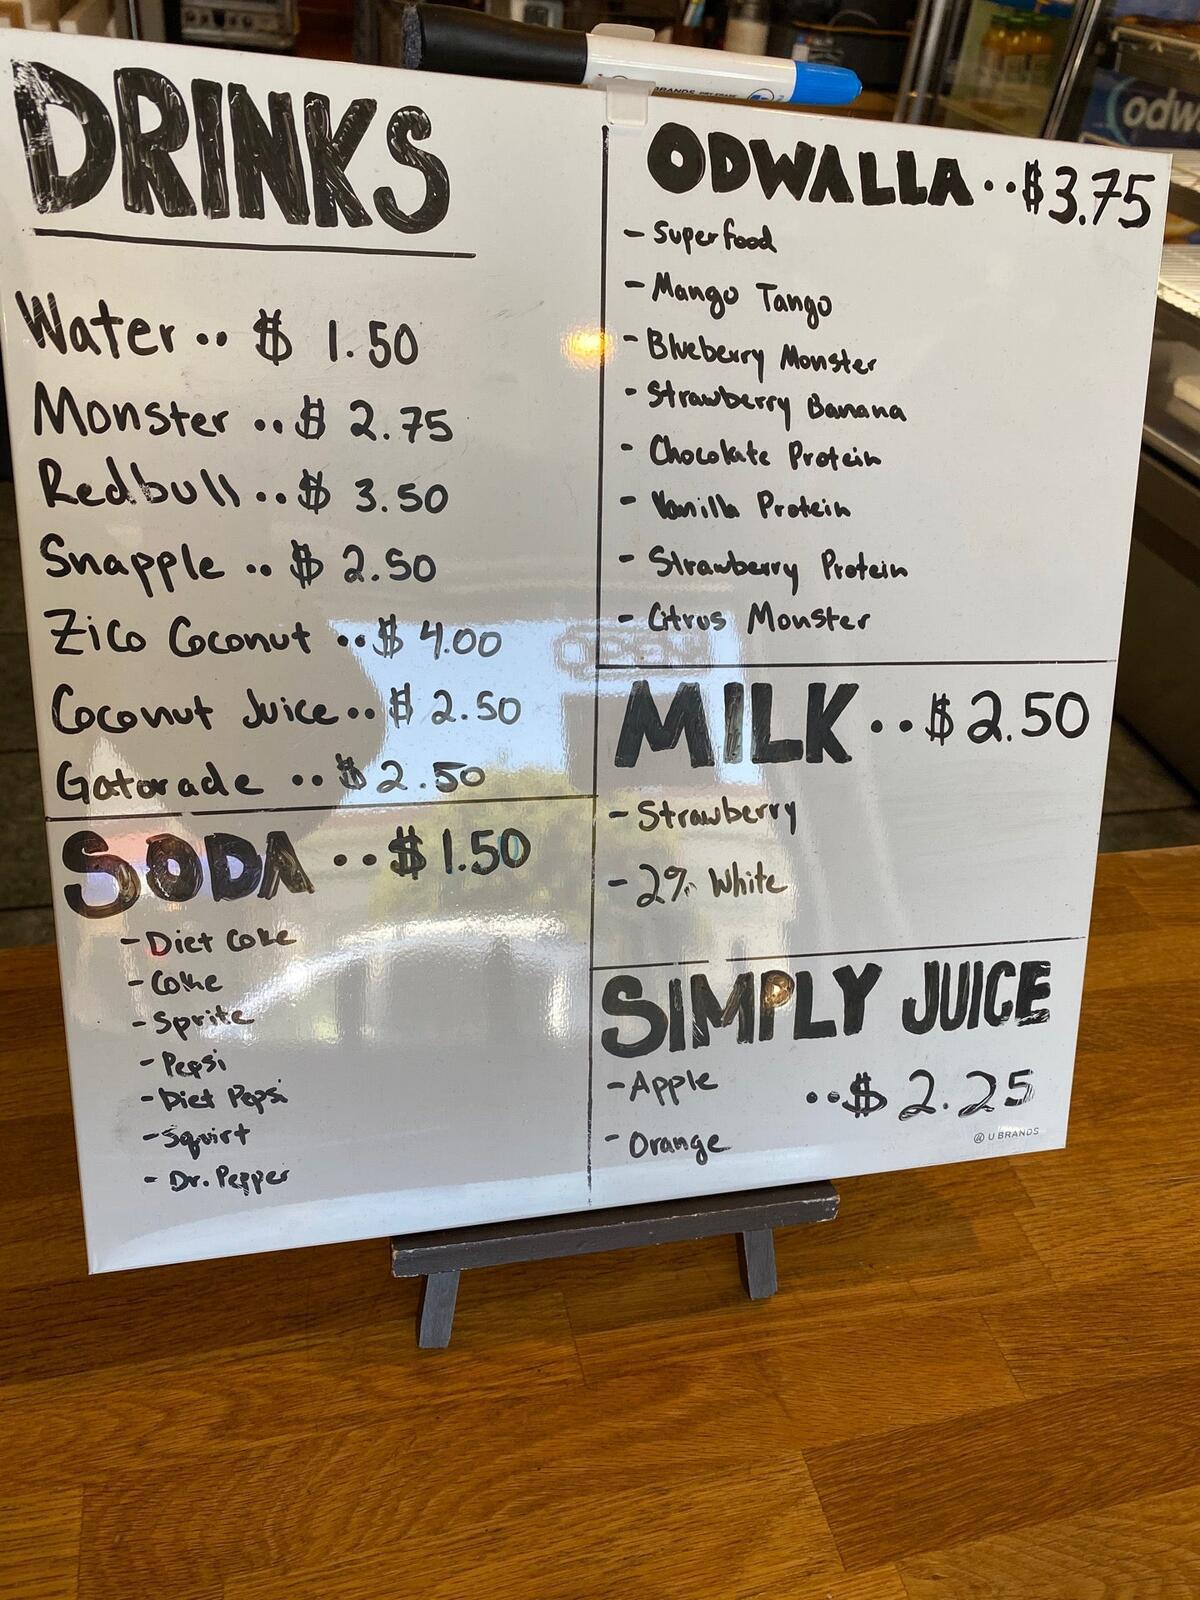 DRINKS
Water .. $ 1.50
Monster .. $ 2.75
Redbull .. $ 3.50
Snapple .. $ 2.50
Zico Coconut .. $ 4.00
Coconut Juice .. $ 2.50
Gatorade .. $ 2.50
SODA .. $ 1.50
- Diet Coke
- Coke
- Sprite
- Pepsi
- Diet Pepsi
- Squirt
- Dr. Pepper
ODWALLA .. $3.75
- Superfood
- Mango Tango
- Blueberry Monster
- Strawberry Banana
- Chocolate Protein
- Vanilla Protein
- Strawberry Protein
- Citrus Monster
MILK .. $ 2.50
- Strawberry
- 2% White
SIMPLY JUICE
- Apple .. $ 2.25
- Orange
U BRANDS
odw